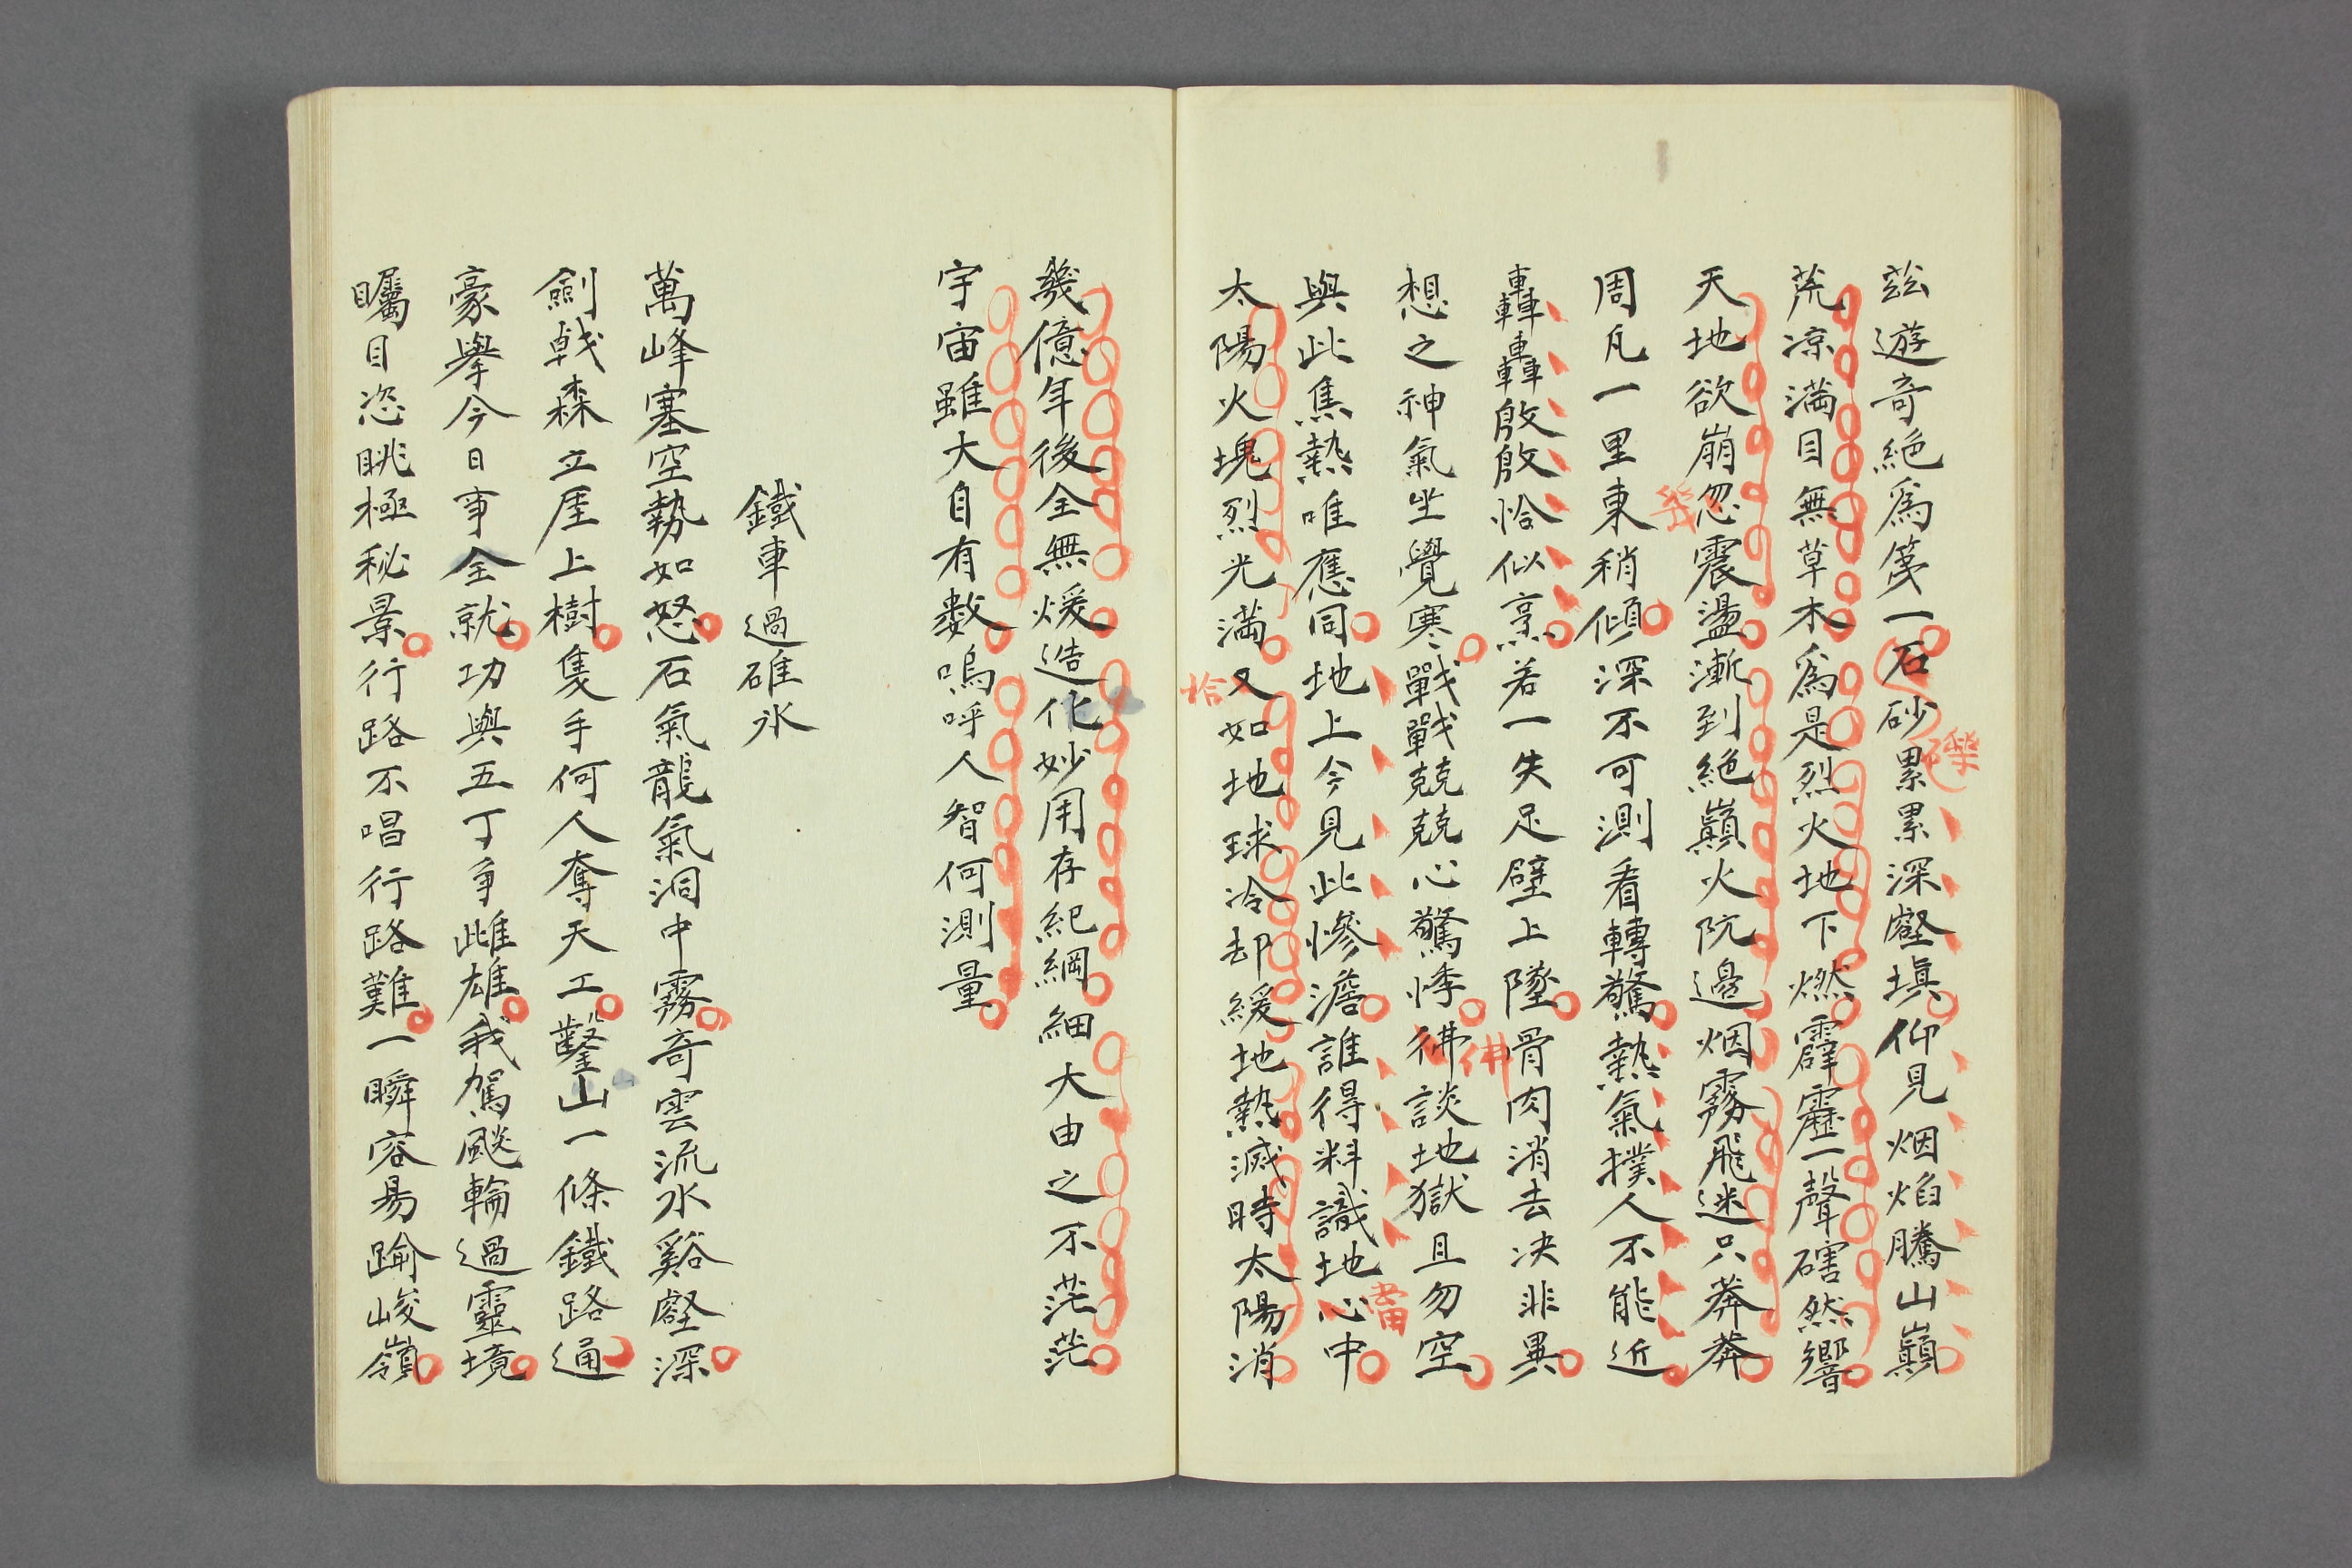 茲遊奇絶爲第一石砂累累深壑塡仰見烟焰騰山巓
礫
荒凉滿目無草木爲是烈火地下燃霹靂一聲礚然響
天地欲崩忽震盪漸到絶巓火阬邉烟霧飛迷只莾莾
幾
周凡一里東稍傾深不可測看轉驚熱氣撲人不能近
轟轟殷殷恰似烹若一失足壁上墜骨肉消去决非異
佛
想之神氣坐覺寒戰戰兢兢心驚悸彿談地獄且勿空
與此焦熱唯應同地上今見此慘澹誰得料識地心中
當
太陽火塊烈光滿又如地球冷却緩地熱滅時太陽消
恰
幾億年後全無煖造化妙用存紀綱細大由之不茫茫
宇宙雖大自有數嗚呼人智何測量
鐵車過碓氷
萬峰塞空勢如怒石氣龍氣洞中霧奇雲流水谿壑深
劍戟森立厓上樹隻手何人奪天工鑿山一條鐵路通
豪擧今日事全就功與五丁爭雌雄我駕飈輪過靈境
矚目恣眺極秘景行路不唱行路難一瞬容易踰峻嶺